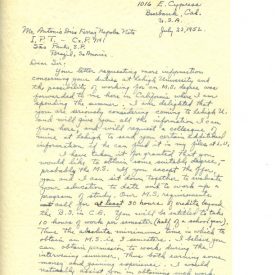 1016 E. Cypress
Burbank, Cal.
U.S.A.
July 23, 1952.
Mr. Antonio Dias Ferraz Napoles Neto
I.P.T. - Cx. P. 7141
São Paulo, S.P.
Brazil, So. America
Dear Sir:
Your letter requesting more information
concerning your duties at Lehigh University and
the possibility of working for an M.S. degree was
forwarded to me here in California where I am
spending the summer. I am delighted that
you are seriously considering coming to Lehigh U.
and will give you all the information I can
from here and will request a colleague of
mine at Lehigh to send you certain additional
information if he can find it in my files at L.U.
I have taken it for granted that you
would like to obtain some suitable degree,
probably the M.S. If you accept the offer
you and I can sit down together to evaluate
your education to date and to work up a
program of study. Our M.S. requirements
call for at least 30 hours of credit beyond
the B.S. in C.E. You will be entitled to take
10 hours of work per semester (half of a school year).
Thus the absolute minimum time in which to
obtain an M.S. is 3 semesters. I believe you
can obtain permission to work during the
intervening summer. Thus both earning some
money and gaining experience. I would